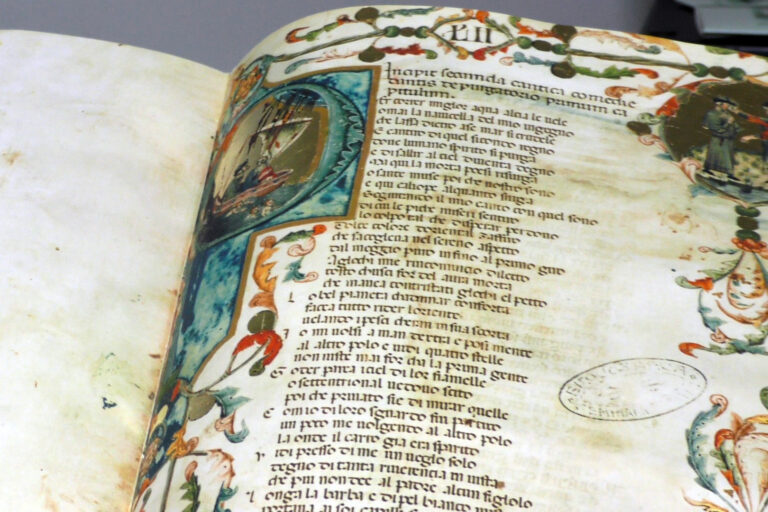 LII
Incipit secunda cantica comedie
dantis de purgatorio primum ca
pitulum.
Per correr miglor aqua alcia le uele
omai la nauicella del mio ingegno
che lassa dietro a se mar si crudele
E cantaro di quel secondo regno
oue lumano spirito si purga
e di sallir al ciel diuenta degno
Ma qui la morta poesi resurga
o sante muse poi che uostro sono
e qui caliope alquanto surga
Seguitando il mio canto con quel sono
di cui le piche misere sentiro
lo colpo tal che disperar perdono
Dolce colore doriental zaffiro
che sacogleua nel sereno aspetto
dal meggio puro infino al primo giro
A gliochi mie rincomincio diletto
tosto chusci for del aura morta
che mauea contristati gliochi el petto
Lo bel pianeta chadamar conforta
facea tutto rider loriente
uelando i pesci cheran in sua scorta
Io mi uolsi a man dextra e posi mente
al altro polo e uidi quatro stelle
non uiste mai for cha la prima gente
Goder parea il ciel di lor fiamelle
o settentrional uedouo sito
poi che priuato sie di mirar quelle
Com io di loro sguardo fui partito
un poco me uolgendo al altro polo
la onde il carro gia era sparito
Vidi presso di me un ueglo solo
degno di tanta riuerencia in uista
che piu non dee al padre alcun figlolo
Longa la barba e di pel bianco mista
portaua ai soi capilli